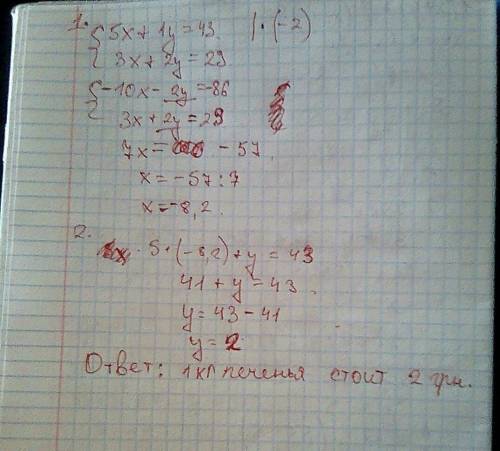 1. 5x + 1y = 43 | · (-2)
3x + 2y = 29
-10x - 2y = -86
3x + 2y = 29
7x = - 57
x = - 57 : 7
x = -8,2.
2.
5 · (-8,2) + y = 43
41 + y = 43.
y = 43 - 41
y = 2
Ответ: 1 кг печенья стоит 2 грн.